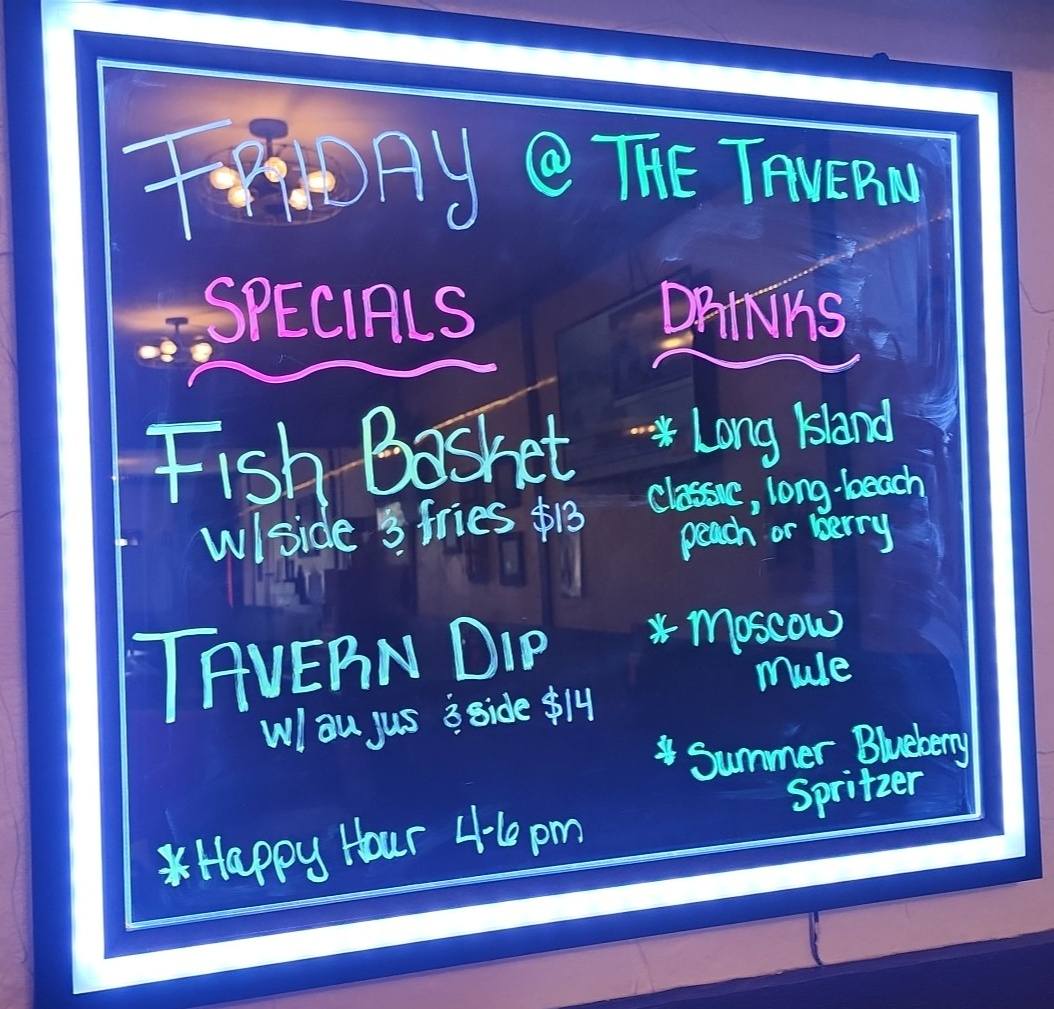 FRIDAY @ THE TAVERN
SPECIALS
Fish Basket
w/side & fries $13
TAVERN DIP
w/ au jus & side $14
*Happy Hour 4-6 pm
DRINKS
* Long Island
Classic, long-beach
peach or berry
* Moscow
mule
* Summer Blueberry
Spritzer